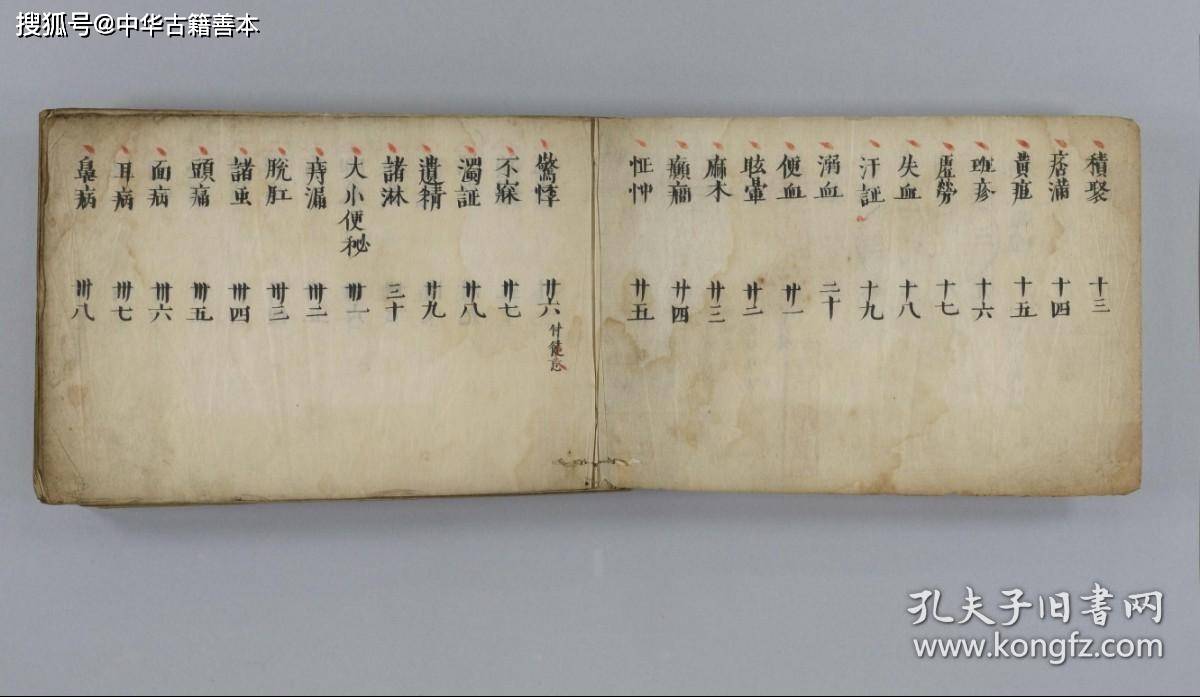 搜狐号@中华古籍善本
積聚 十三
痞滿 十四
黄疸 十五
斑疹 十六
虛勞 十七
失血 十八
汗証 十九
溺血 二十
便血 廿一
眩暈 廿二
麻木 廿三
癲癇 廿四
怔忡 廿五
驚悸 廿六 付健忘
不寐 廿七
濁証 廿八
遺精 廿九
諸淋 三十
大小便秘 卅一
痔漏 卅二
脫肛 卅三
諸虫 卅四
頭痛 卅五
面病 卅六
耳病 卅七
鼻病 卅八
孔夫子旧书网
www.kongfz.com